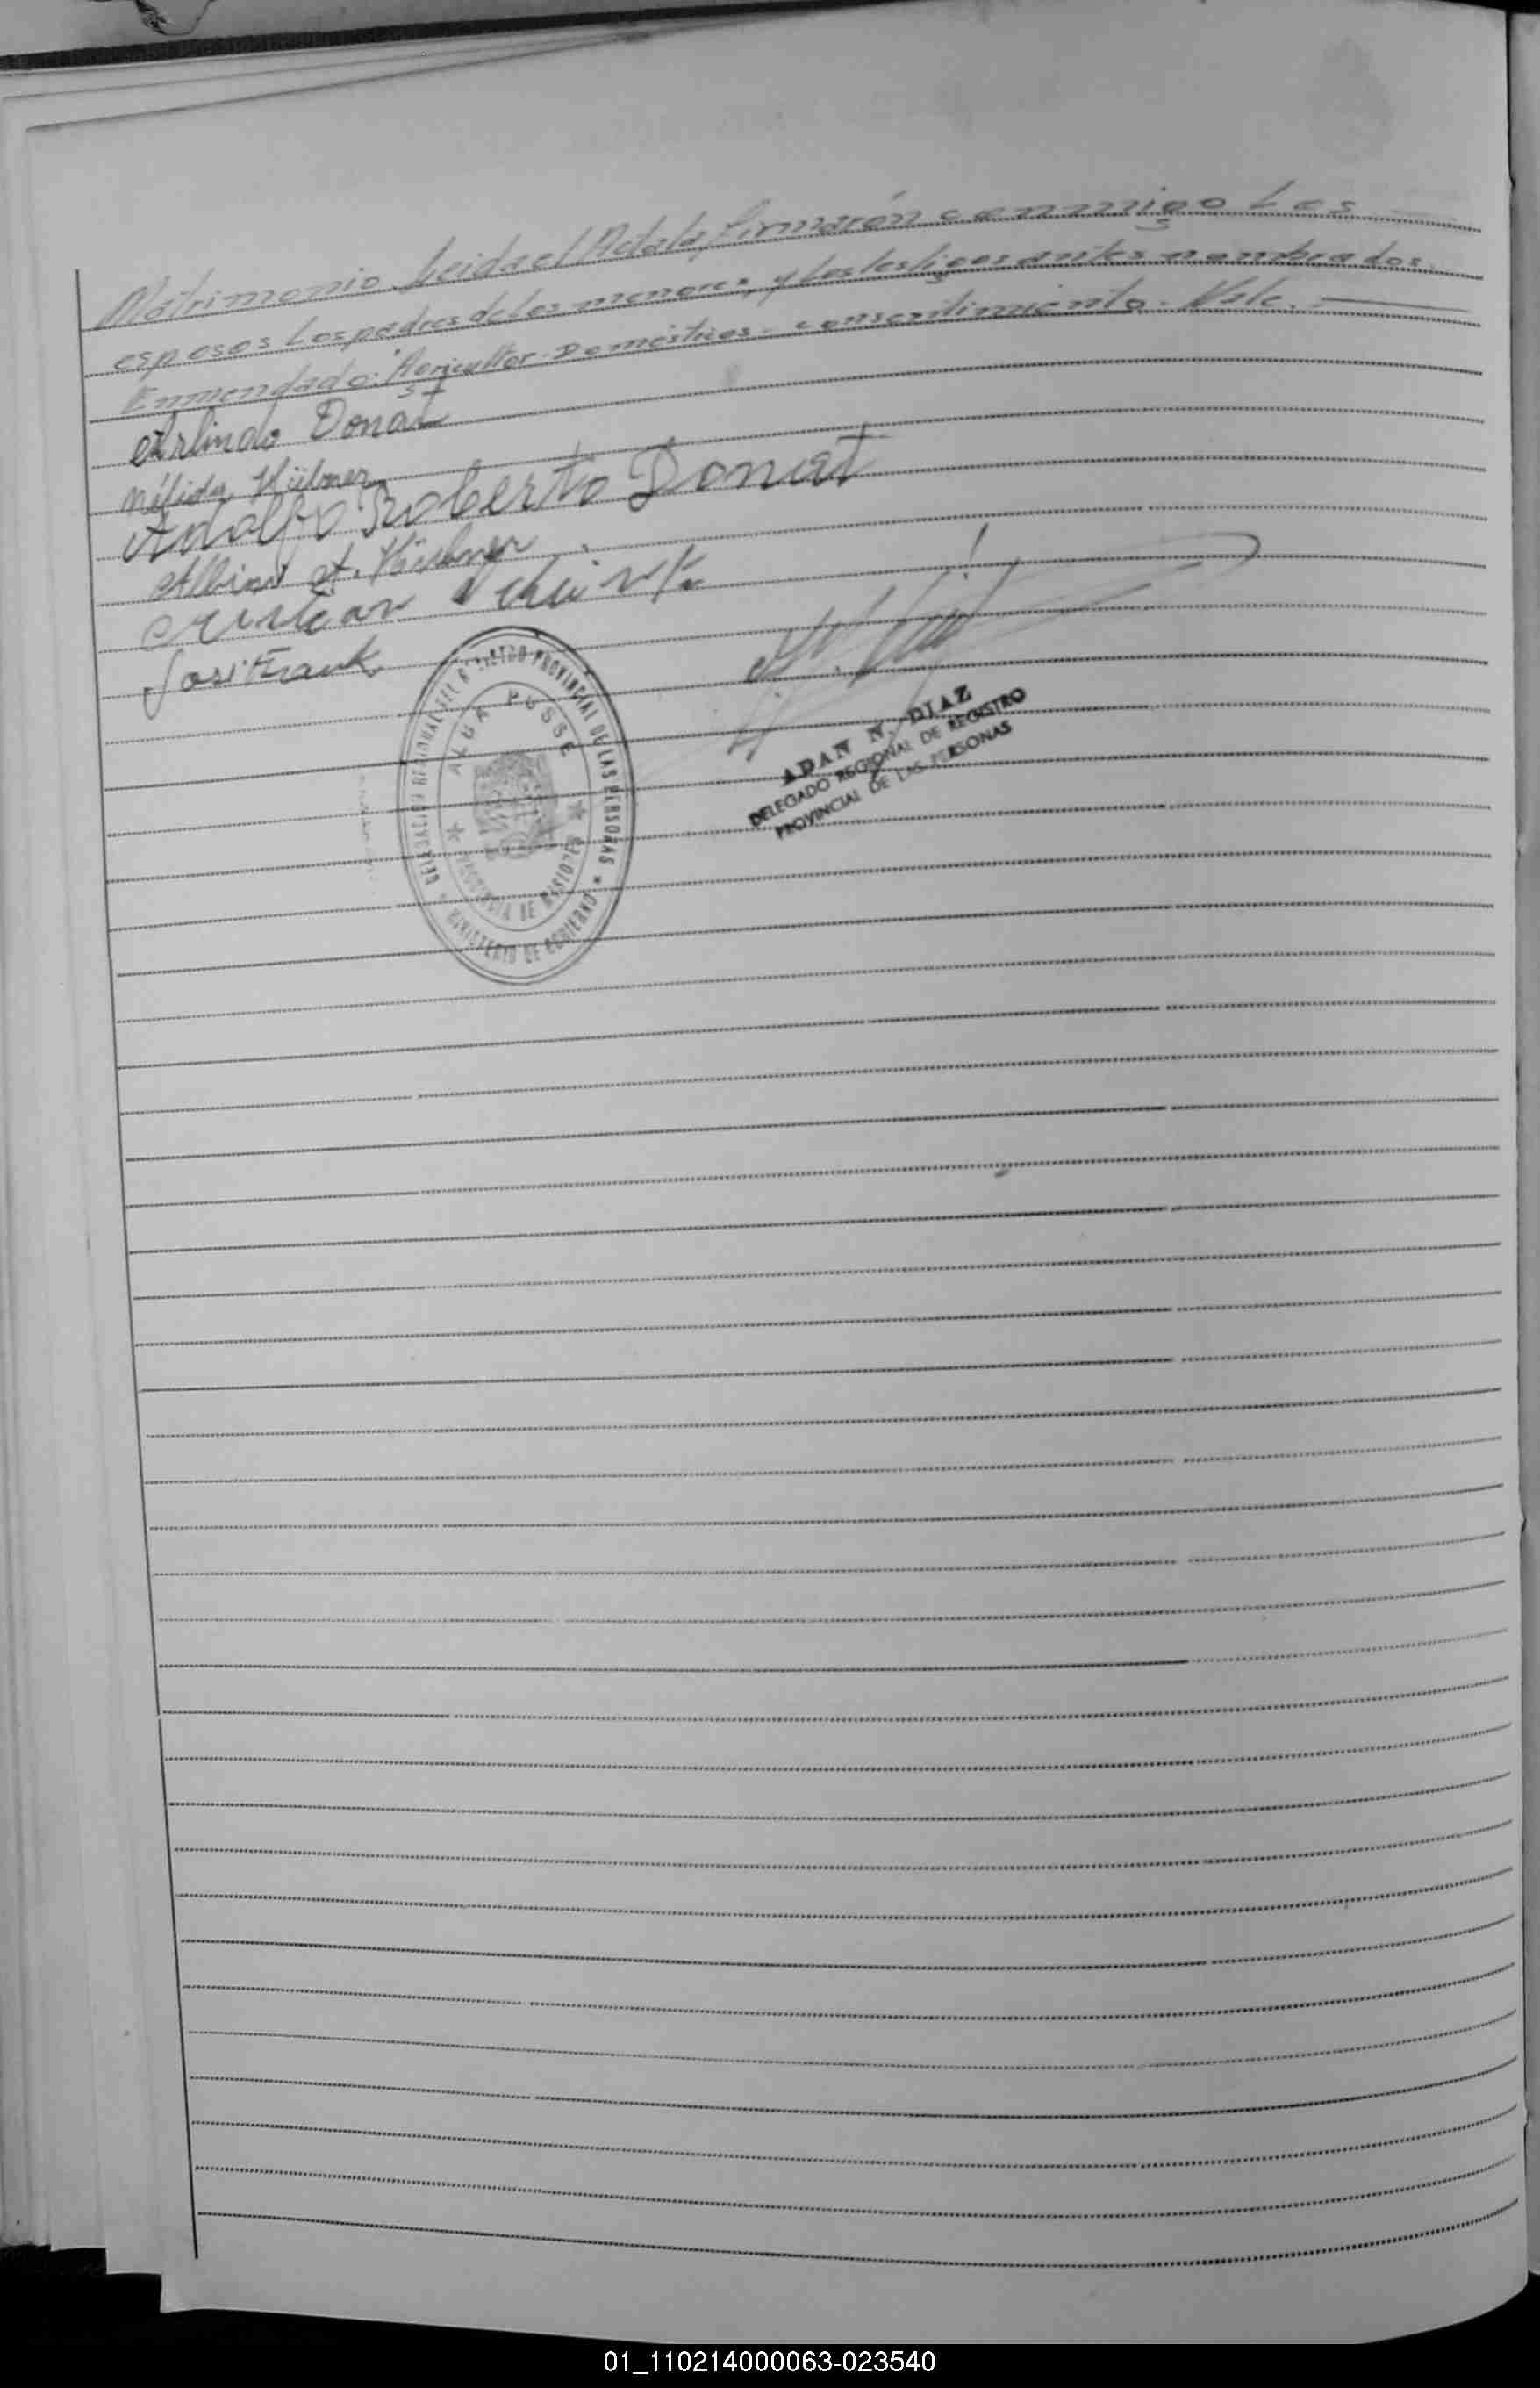 Matrimonio. Leida el Acta la firmarón conmigo Los
esposos Los padres de los menores, y Los testigos antes nombrados.
Enmendado: Agricultor - Domésticos - consentimiento - Vale.
Arlindo Donat
Nélida Hübner
Adolfo Roberto Donat
Albino A. Hübner
José Frank
DELEGACION REGIONAL DEL REGISTRO PROVINCIAL DE LAS PERSONAS
ALBA POSSE
PROVINCIA DE MISIONES
MINISTERIO DE GOBIERNO
ADAN N. DIAZ
DELEGADO REGIONAL DE REGISTRO
PROVINCIAL DE LAS PERSONAS
01_110214000063-023540